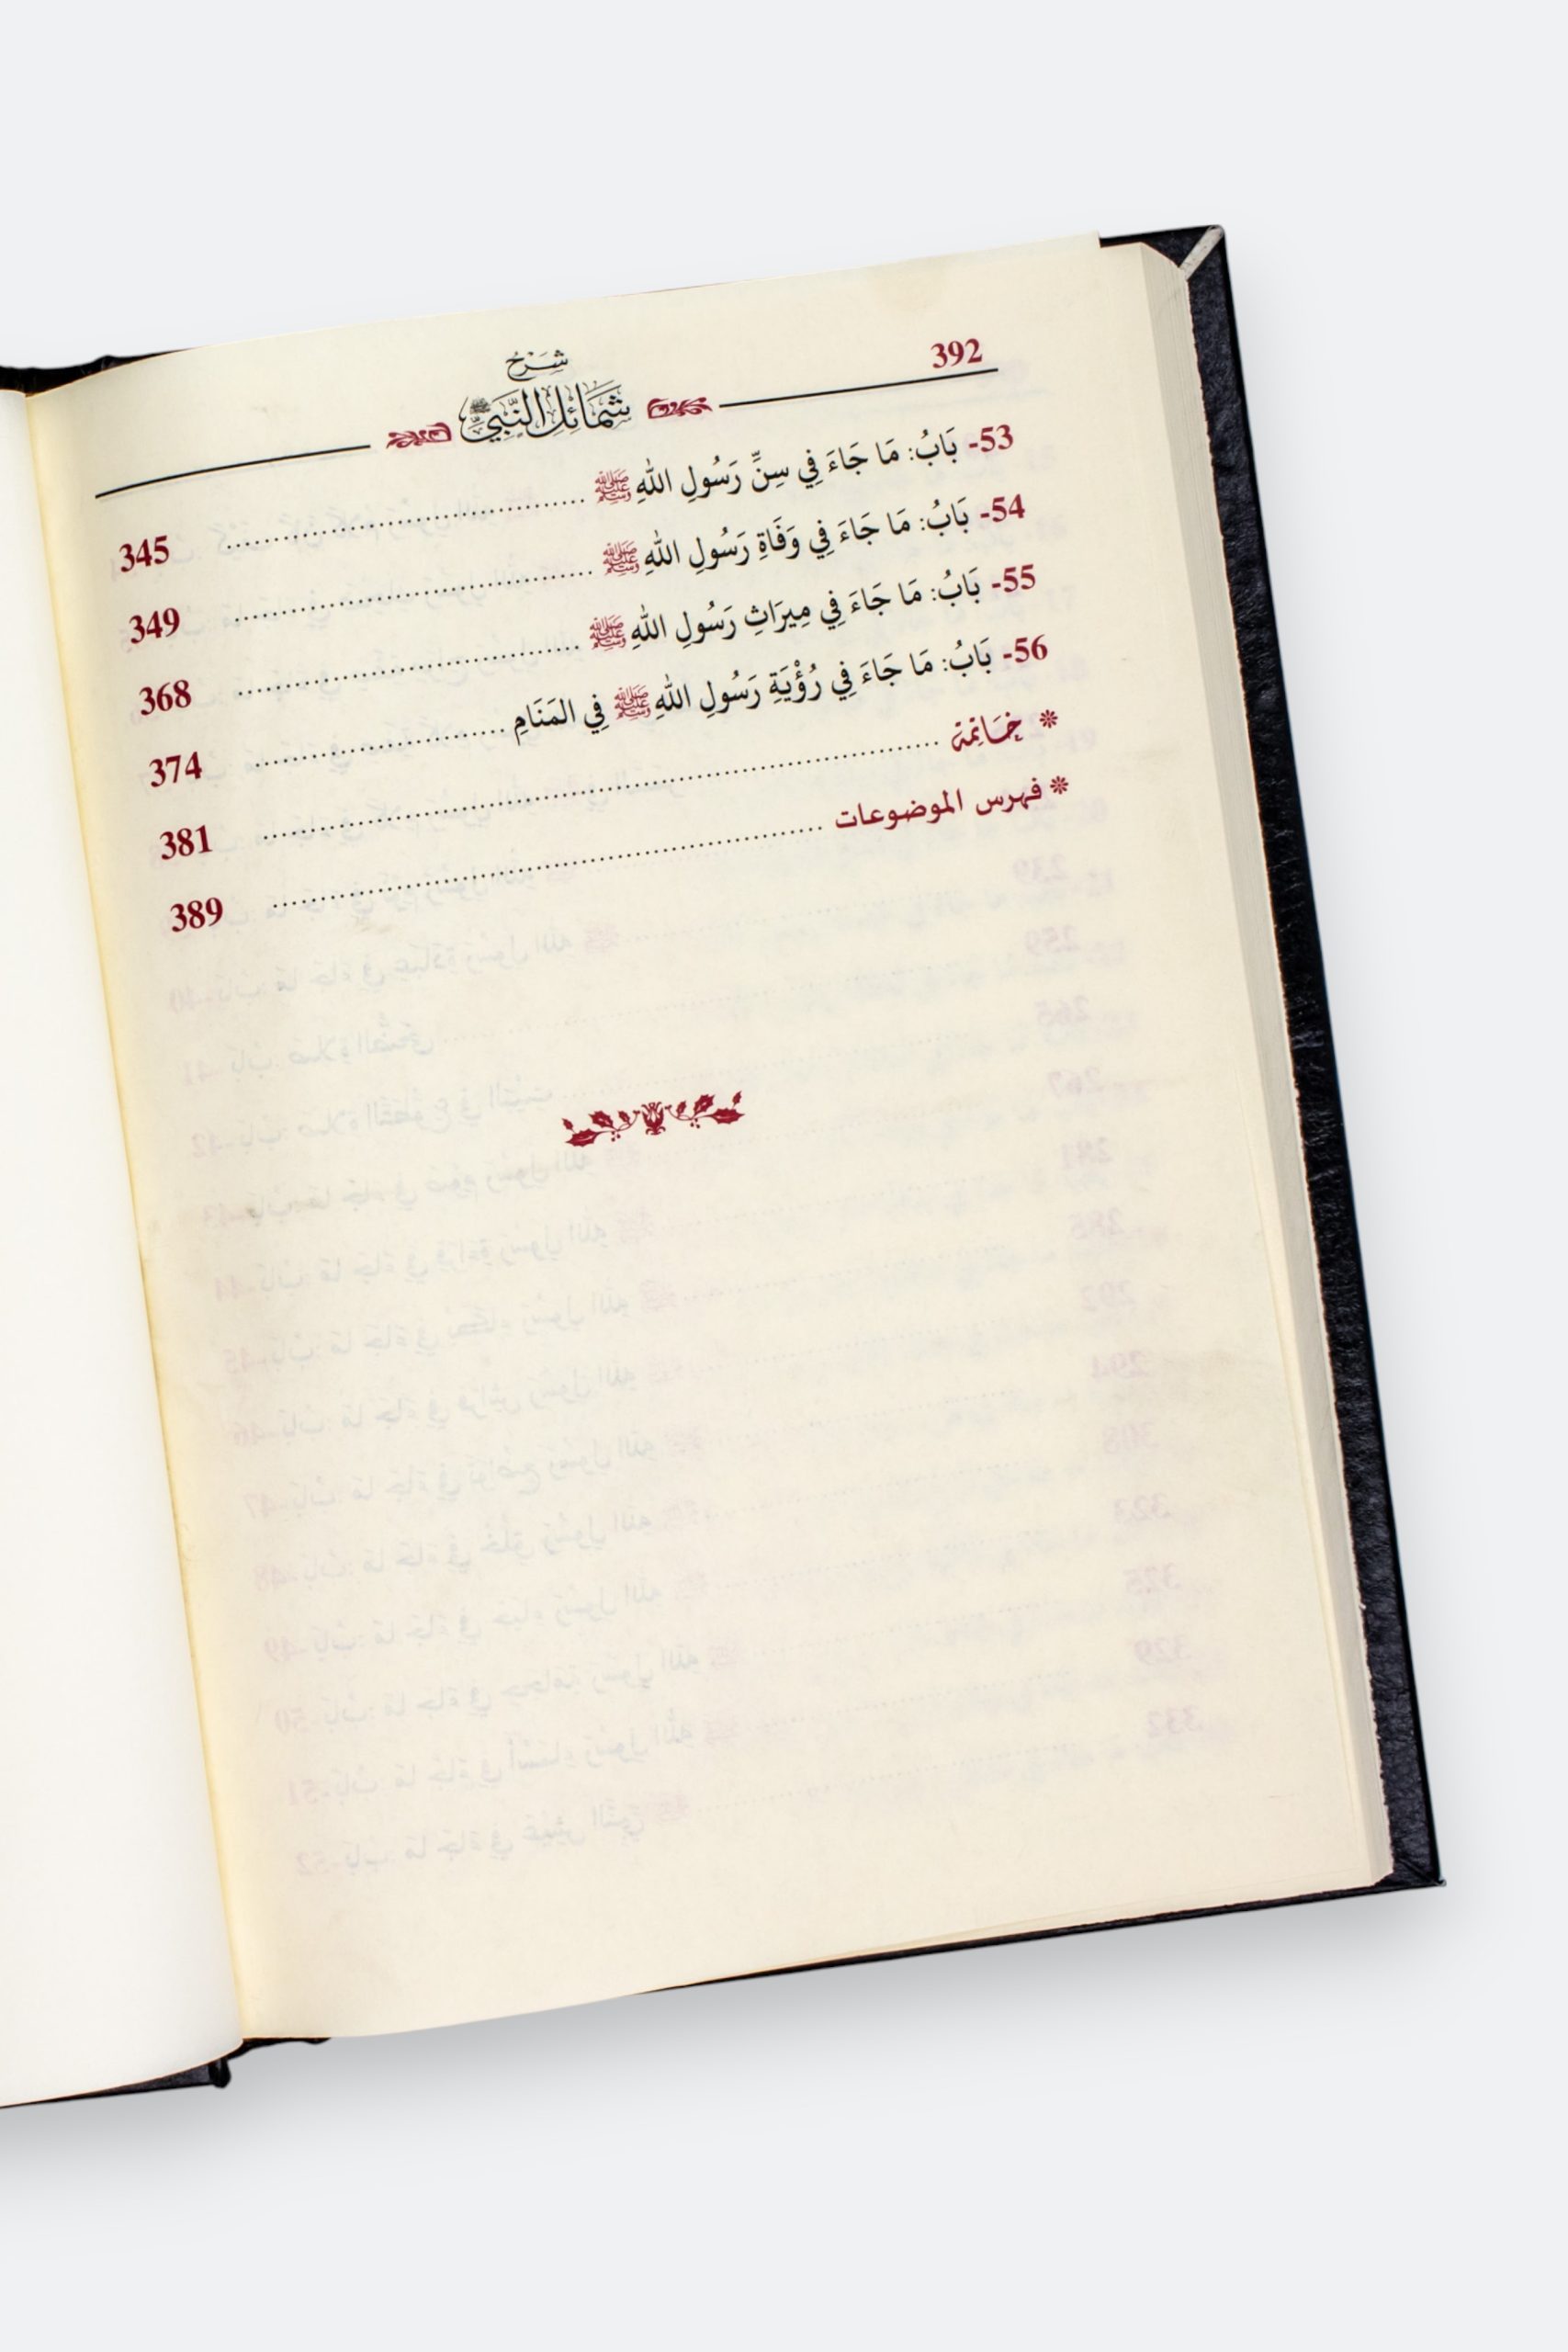 392
شَرْحُ
شَمَائِلِ النَّبِيِّ ﷺ
53- بَابُ: مَا جَاءَ فِي سِنِّ رَسُولِ اللهِ ﷺ ........ 345
54- بَابُ: مَا جَاءَ فِي وَفَاةِ رَسُولِ اللهِ ﷺ ........ 349
55- بَابُ: مَا جَاءَ فِي مِيرَاثِ رَسُولِ اللهِ ﷺ ........ 368
56- بَابُ: مَا جَاءَ فِي رُؤْيَةِ رَسُولِ اللهِ ﷺ فِي المَنَامِ ........ 374
* خَاتِمَة ........ 381
* فهرس الموضوعات ........ 389